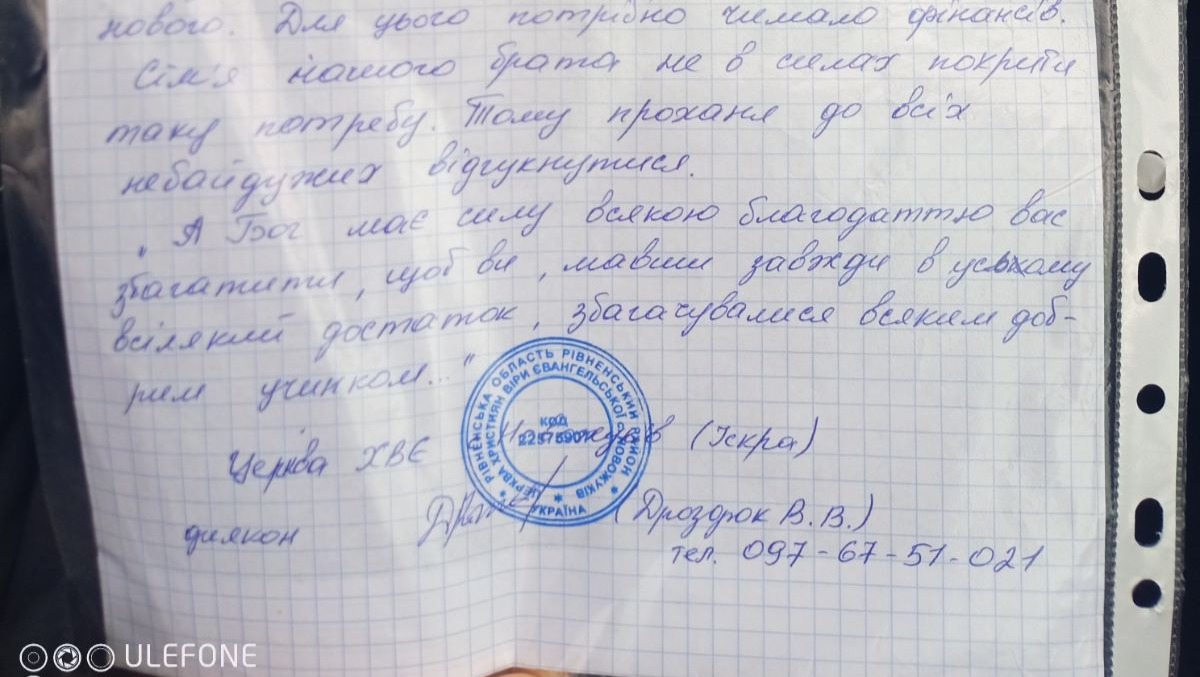 нового. Для цього потрібно чимало фінансів.
Сім'я нашого брата не в силах покрити
таку потребу. Тому проханя до всіх
небайдужих відгукнутися.
„А Бог має силу всякою благодаттю вас
збагатити, щоб ви, мавши завжди в усьому
всілякий достаток, збагачувалися всяким доб-
рим учинком..."
РІВНЕНСЬКА ОБЛАСТЬ РІВНЕНСЬКИЙ РАЙОН
ЦЕРКВА ХРИСТИЯН ВІРИ ЄВАНГЕЛЬСЬКОЇ С. НОВОЖУКІВ
КОД
УКРАЇНА
Церква ХВЄ Новожуків (Іскра)
диякон (Дроздюк В.В.)
тел. 097-67-51-021
ULEFONE